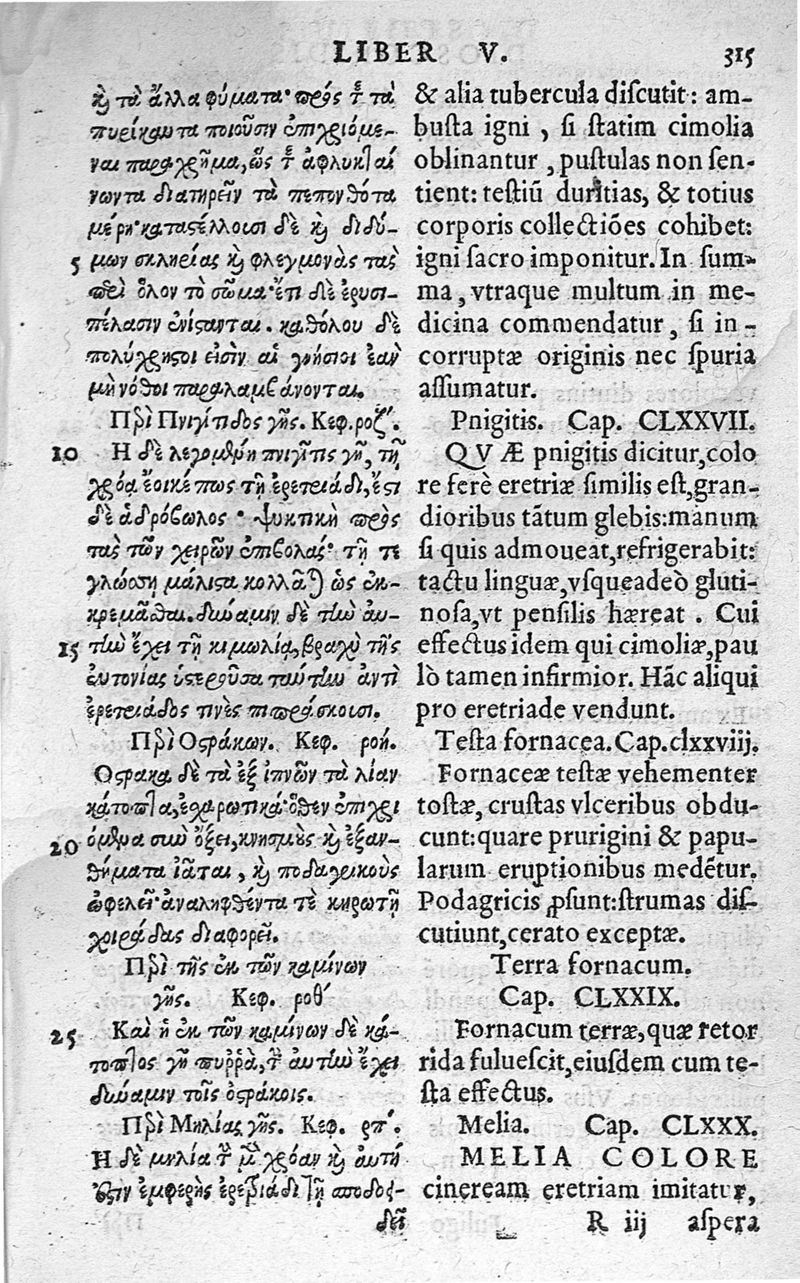 LIBER V. 315
καὶ τὰ ἄλλα φύματα· πρὸς δὲ τὰ
πυρίκαυτα ποιοῦσιν ἐπιχριόμε-
ναι παραχρῆμα, ὡς
νωντα διατηρεῖν τὰ πεπονθότα
μέρη· καταστέλλουσι δὲ καὶ διδύ-
5 μων σκληρίας καὶ φλεγμονὰς τὰς
περὶ ὅλον τὸ σῶμα· ἔτι δὲ ἐρυσι-
πέλασιν ἐνίστανται. καθόλου δὲ
πολύχρηστοι εἰσὶν αἱ γνήσιοι ἐὰν
μὴ νόθοι παραλαμβάνονται.
Περὶ Πνιγίτιδος γῆς. Κεφ. ροζʹ.
10 Η δὲ λεγομένη πνιγῖτις γῆ, τῇ
χρόᾳ ἔοικέ πως τῇ ἐρετριάδι, ἔστι
δὲ ἁδρόβωλος· ψυκτικὴ πρὸς
τὰς τῶν χειρῶν ἐπιβολάς· τῇ τε
γλώσσῃ μάλιστα κολλᾶται ὡς ἐκ-
κρεμᾶσθαι. δύναμιν δὲ τὴν αὐ-
15 τὴν ἔχει τῇ κιμωλίᾳ, βραχὺ τῆς
εὐτονίας ὑστεροῦσα ταύτην ἀντὶ
ἐρετριάδος τινὲς πιπράσκουσι.
Περὶ Οστράκων. Κεφ. ροή.
Οστρακα δὲ τὰ ἐξ ἰπνῶν τὰ λίαν
κάτοπτα, ἐσχαρωτικά· ὅθεν ἐπιχρι
20 όμενα σὺν ὄξει, κνησμοὺς καὶ ἐξαν-
θήματα ἰᾶται, καὶ ποδαγρικοὺς
ὠφελεῖ· ἀναληφθέντα τὲ κηρωτῇ
χοιράδας διαφορεῖ.
Περὶ τῆς ἐκ τῶν καμίνων
γῆς. Κεφ. ροθʹ
25 Καὶ ἡ ἐκ τῶν καμίνων δὲ κά-
τοπτος γῆ πυῤῥὰ, τὴν αὐτὴν ἔχει
δύναμιν τοῖς ὀστράκοις.
Περὶ Μηλίας γῆς. Κεφ. ρπʹ.
Η δὲ μηλία τὴν μὲν χρόαν καὶ αὐτή
ἐστιν ἐμφερὴς ἐρετριάδι τῇ σποδοει-
δεῖ
& alia tubercula discutit: am-
busta igni, si statim cimolia
oblinantur, pustulas non sen-
tient: testiū duritias, & totius
corporis collectiões cohibet:
igni sacro imponitur. In sum-
ma, vtraque multum in me-
dicina commendatur, si in-
corruptæ originis nec spuria
assumatur.
Pnigitis. Cap. CLXXVII.
QVÆ pnigitis dicitur, colo
re ferè eretriæ similis est, gran-
dioribus tãtum glebis: manum
si quis admoueat, refrigerabit:
tactu linguæ, vsqueadeò gluti-
nosa, vt pensilis hæreat. Cui
effectus idem qui cimoliæ, pau
lò tamen infirmior. Hãc aliqui
pro eretriade vendunt.
Testa fornacea. Cap. clxxviij.
Fornaceæ testæ vehementer
tostæ, crustas vlceribus obdu-
cunt: quare prurigini & papu-
larum eruptionibus medẽtur.
Podagricis ꝓsunt: strumas dis-
cutiunt, cerato exceptæ.
Terra fornacum.
Cap. CLXXIX.
Fornacum terræ, quæ retor
rida fuluescit, eiusdem cum te-
sta effectus.
Melia. Cap. CLXXX.
MELIA COLORE
cineream eretriam imitatur,
R iij aspera